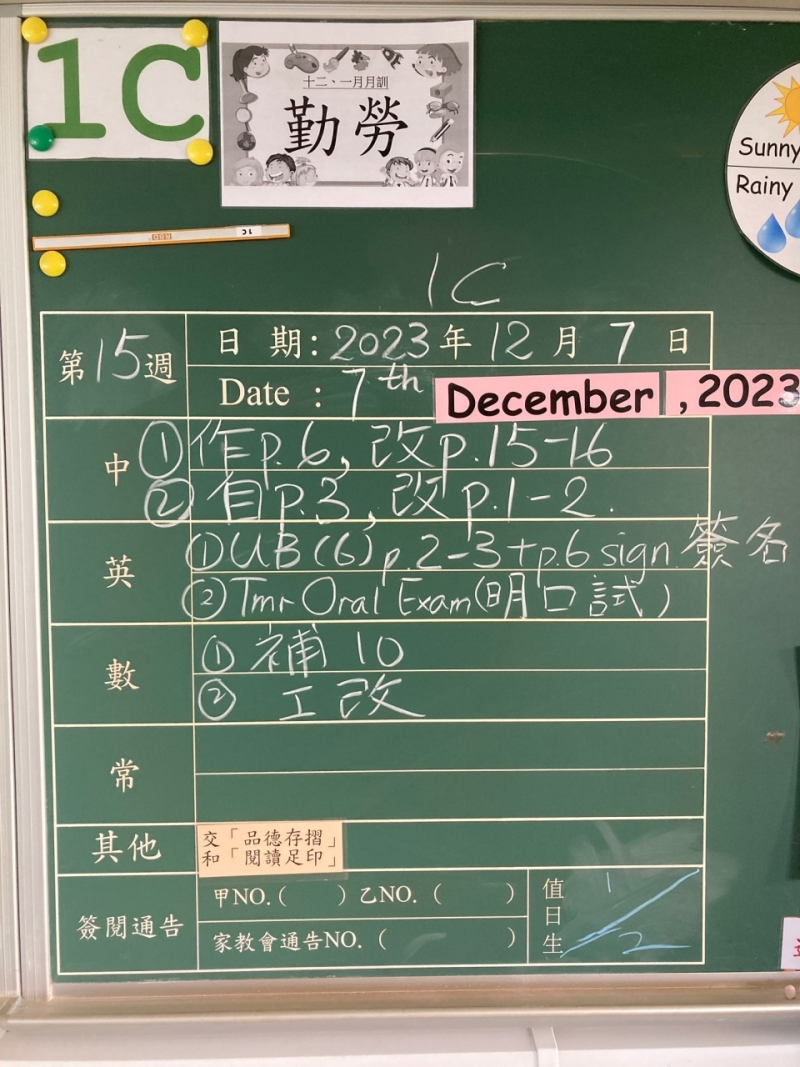 1C
十二、一月月訓
勤勞
Sunny
Rainy
1C
1C
第15週
日 期：2023年12月7日
Date : 7th December , 2023
中
①作p.6, 改p.15-16
②自p.3, 改p.1-2.
英
①UB(6)p.2-3+p.6 sign 簽名
②Tmr Oral Exam(明口試)
數
①補10
②工改
常
其他
交「品德存摺」
和「閱讀足印」
簽閱通告
甲NO.(    )乙NO.(    )
家教會通告NO.(    )
值日生
1/2